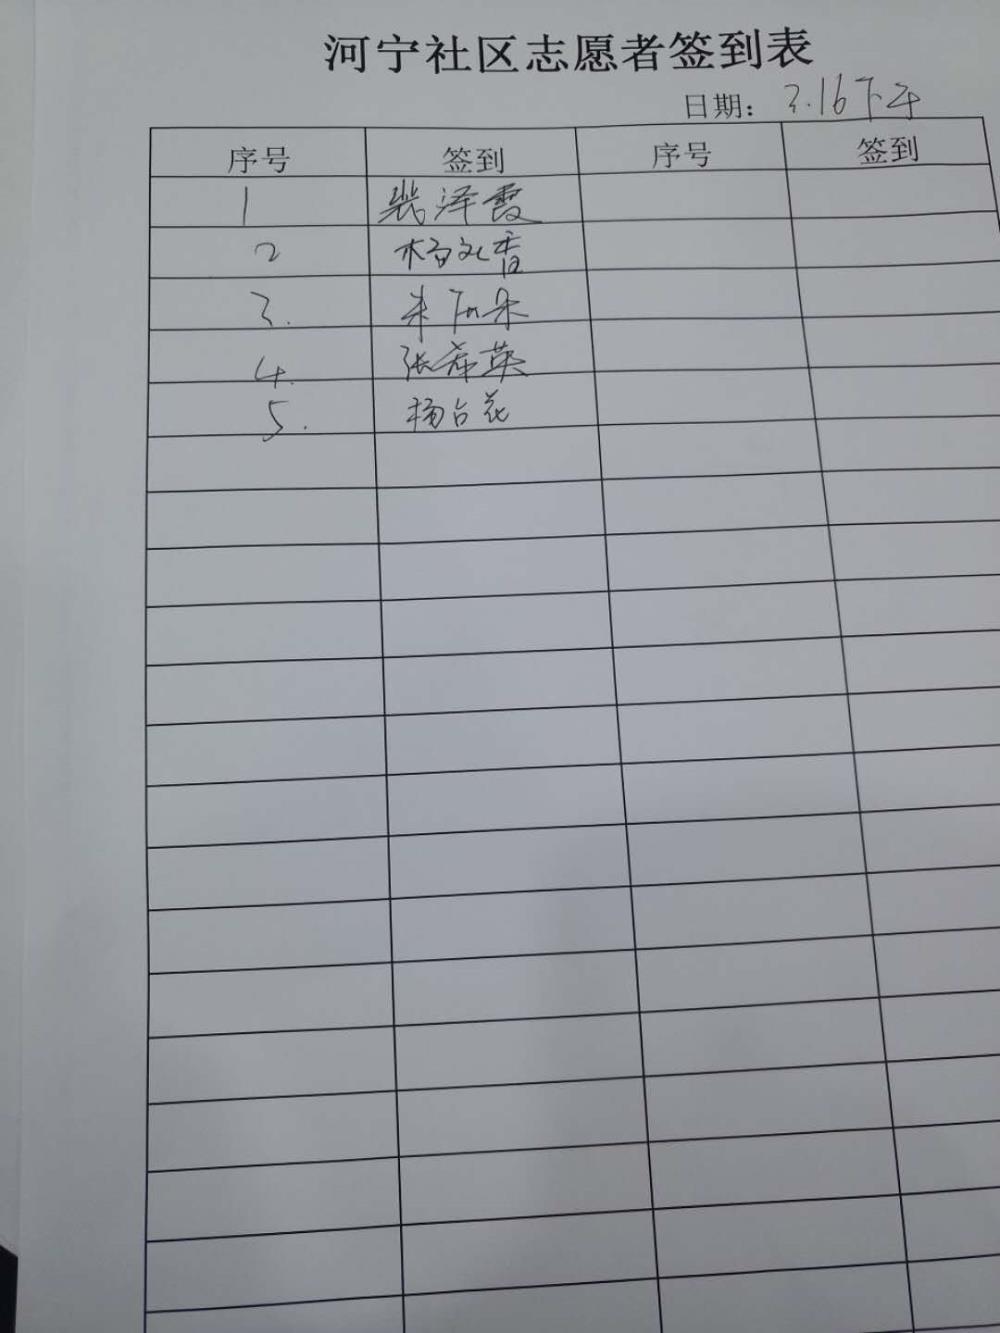 河宁社区志愿者签到表
日期: 3.16下午
序号 签到 序号 签到
1 裴泽霞
2 杨文香
3. 朱
4. 张希英
5. 杨占花